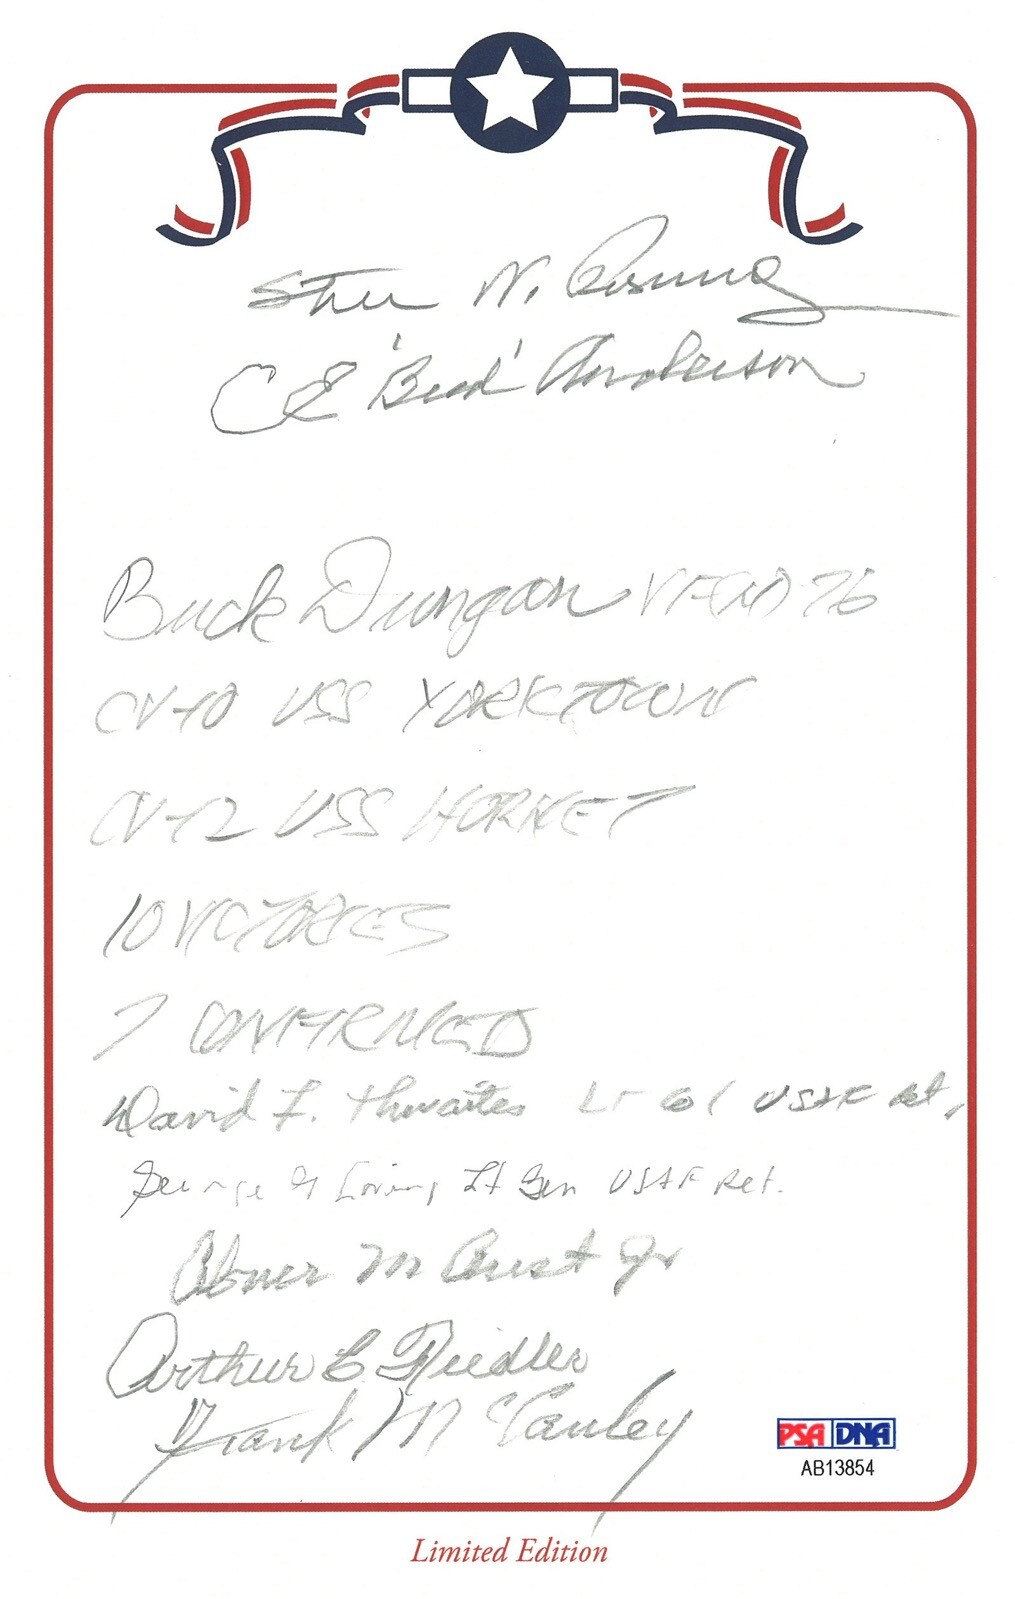 Steve N. Pisanos
C E 'Bud' Anderson
Buck Dungan VF(N) 76
CV-10 USS YORKTOWN
CV-12 USS HORNET
10 VICTORIES
7 CONFIRMED
David F. Thwaites LT Col USAF Ret,
George G Loving Lt Gen USAF Ret.
Abner M Aust Jr
Arthur C Fiedler
Frank McCauley
PSA DNA
AB13854
Limited Edition